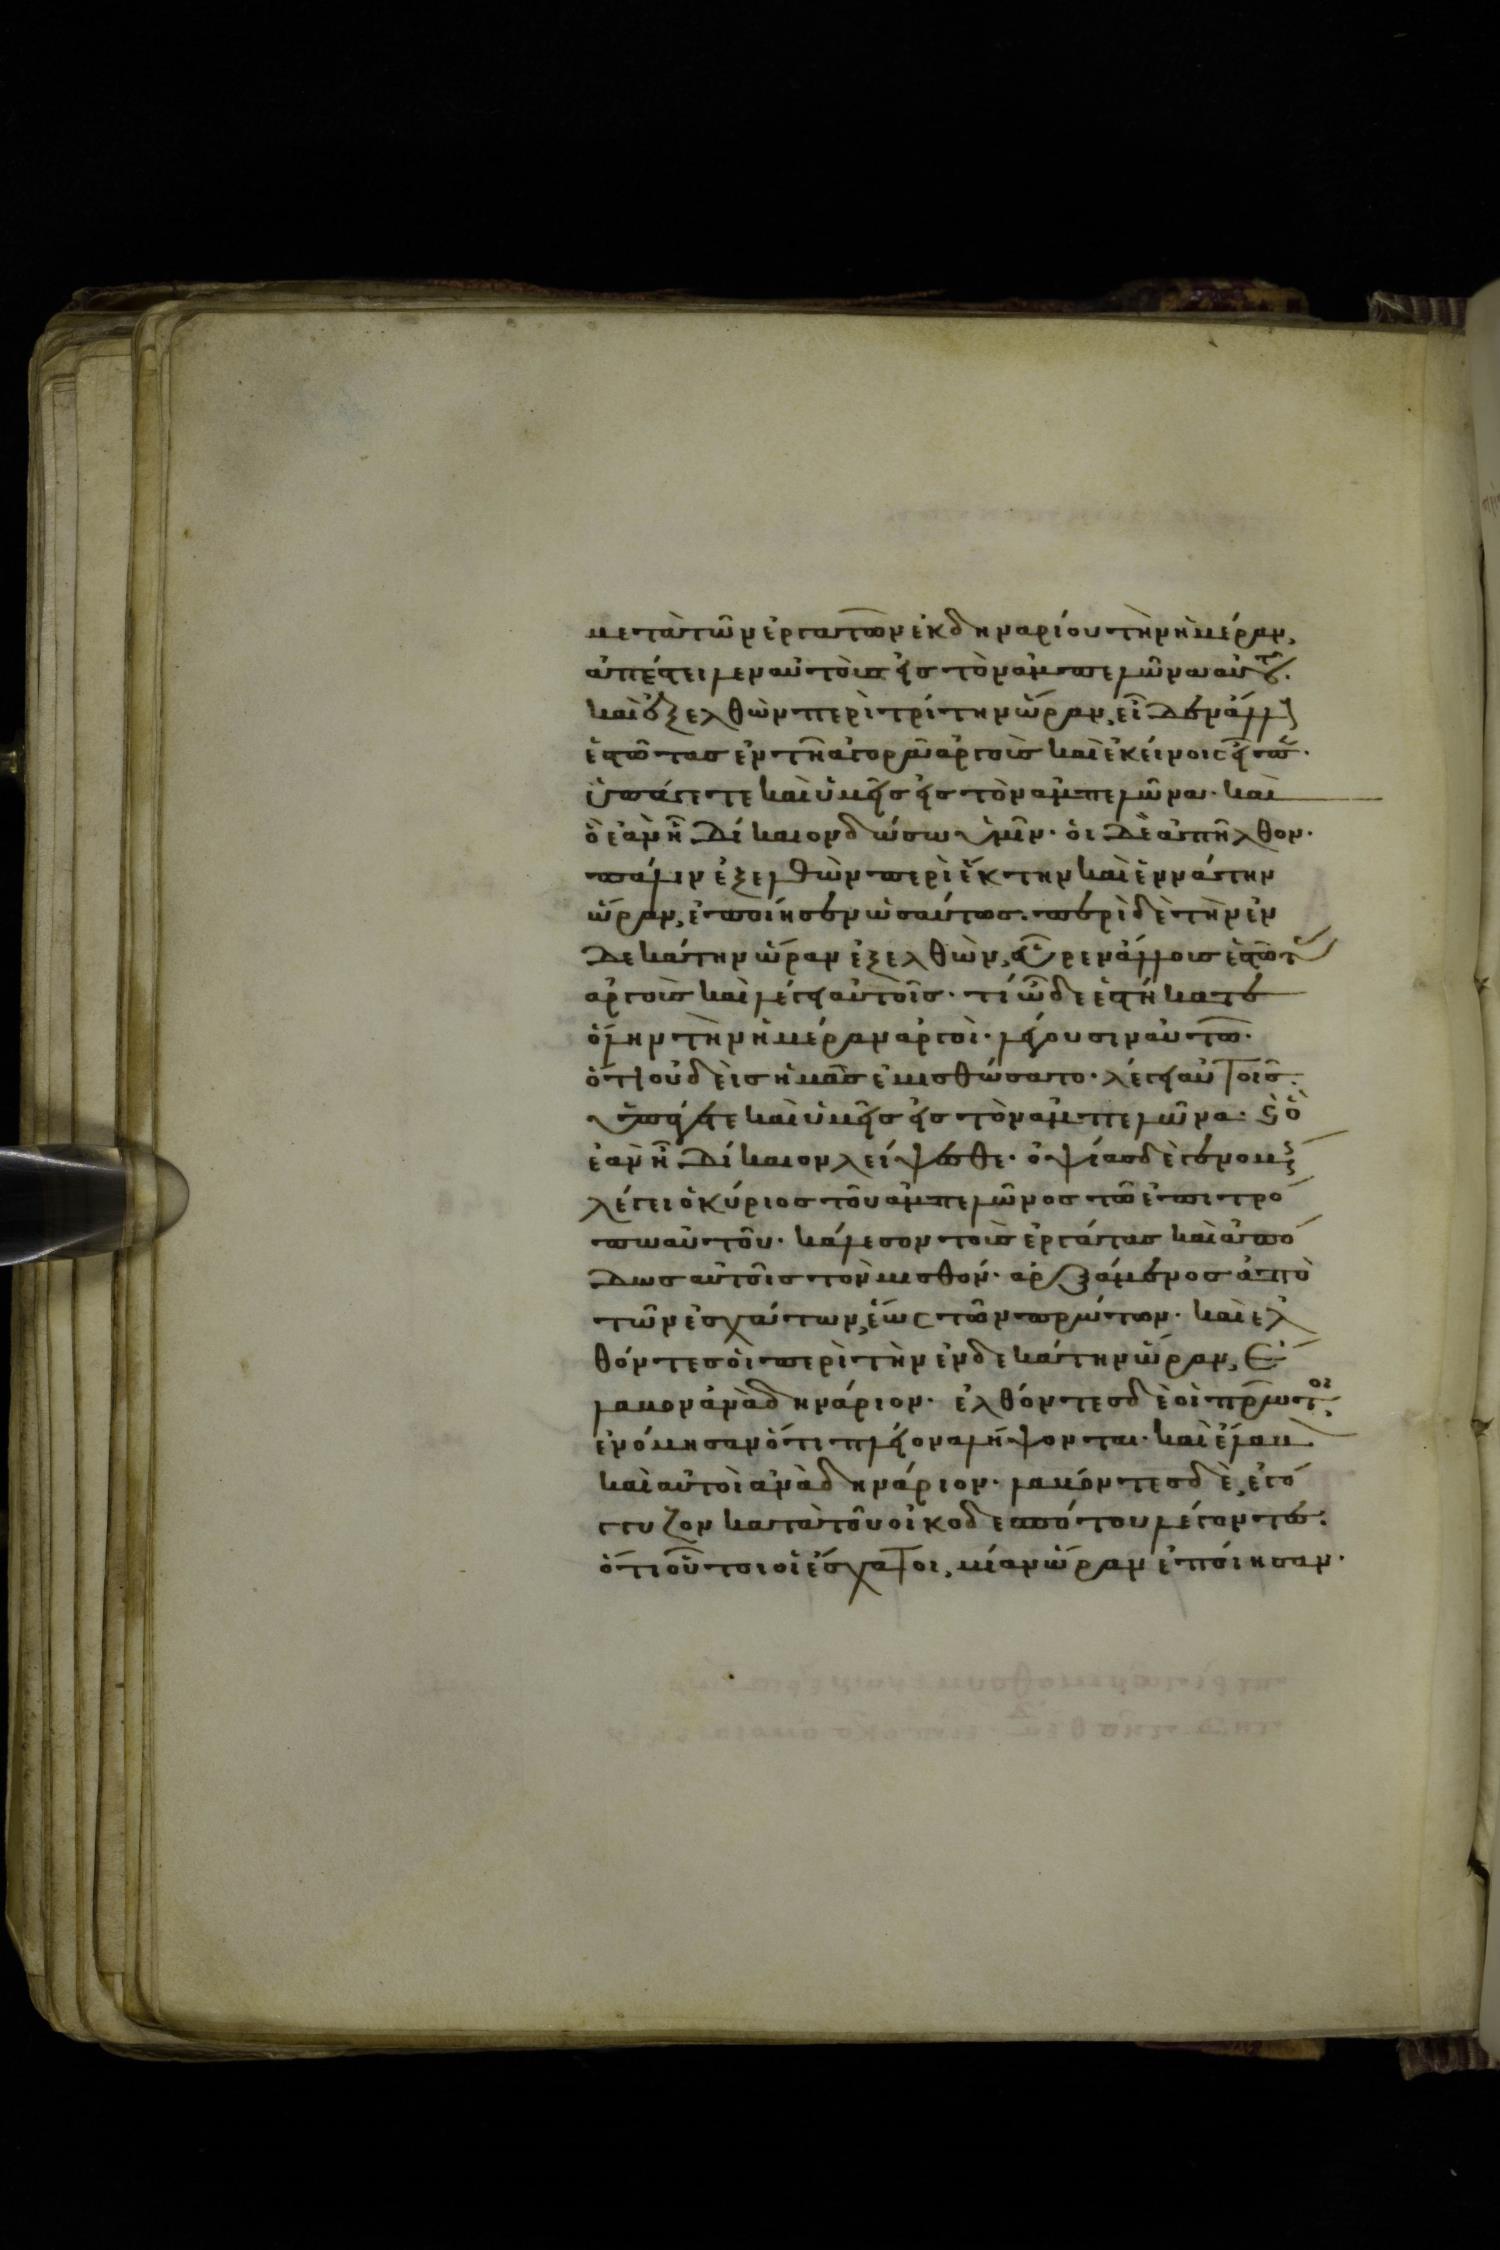 μετὰ τῶν ἐργατῶν ἐκ δηναρίου τὴν ἡμέραν,
ἀπέστειλεν αὐτοὺς εἰς τὸν ἀμπελῶνα αὐτοῦ.
καὶ ἐξελθὼν περὶ τρίτην ὥραν, εἶδεν ἄλλους
ἑστῶτας ἐν τῇ ἀγορᾷ ἀργοὺς καὶ ἐκείνοις εἶπεν·
ὑπάγετε καὶ ὑμεῖς εἰς τὸν ἀμπελῶνα· καὶ
ὃ ἐὰν ῇ δίκαιον δώσω ὑμῖν· οἱ δὲ ἀπῆλθον·
πάλιν ἐξελθὼν περὶ ἕκτην καὶ ἐννάτην
ὥραν, ἐποίησεν ὡσαύτως· περὶ δὲ τὴν ἑν
δεκάτην ὥραν ἐξελθὼν, εὗρεν ἄλλους ἑστῶτας
ἀργοὺς καὶ λέγει αὐτοῖς· τί ὧδε ἑστήκατε
ὅλην τὴν ἡμέραν ἀργοί· λέγουσιν αὐτῶ·
ὅτι οὐδεὶς ἡμᾶς ἐμισθώσατο· λέγει αὐτοῖς·
ὑπάγετε καὶ ὑμεῖς εἰς τὸν ἀμπελῶνα· καὶ ὃ
ἐὰν ῇ δίκαιον λείψεσθε· ὀψίας δὲ γενομένης
λέγει ὁ κύριος τοῦ ἀμπελῶνος τῶ ἐπιτρό
πω αὐτοῦ· κάλεσον τοὺς ἐργάτας καὶ ἀπό
δως αὐτοῖς τὸν μισθόν· ἀρξάμενος ἀπὸ
τῶν ἐσχάτων, ἕως τῶν πρώτων· καὶ ἐλ
θόντες οἱ περὶ τὴν ἑνδεκάτην ὥραν, ἔ
λαβον ἀνὰ δηνάριον· ἐλθόντες δὲ οἱ πρῶτοι,
ἐνόμησαν ὅτι πλείονα λήψονται· καὶ ἔλαβον
καὶ αὐτοὶ ἀνὰ δηνάριον· λαβόντες δὲ, ἐγό
γγυζον κατὰ τοῦ οἰκοδεσπότου λέγοντες·
ὅτι οὗτοι οἱ ἔσχατοι, μίαν ὥραν ἐποίησαν·